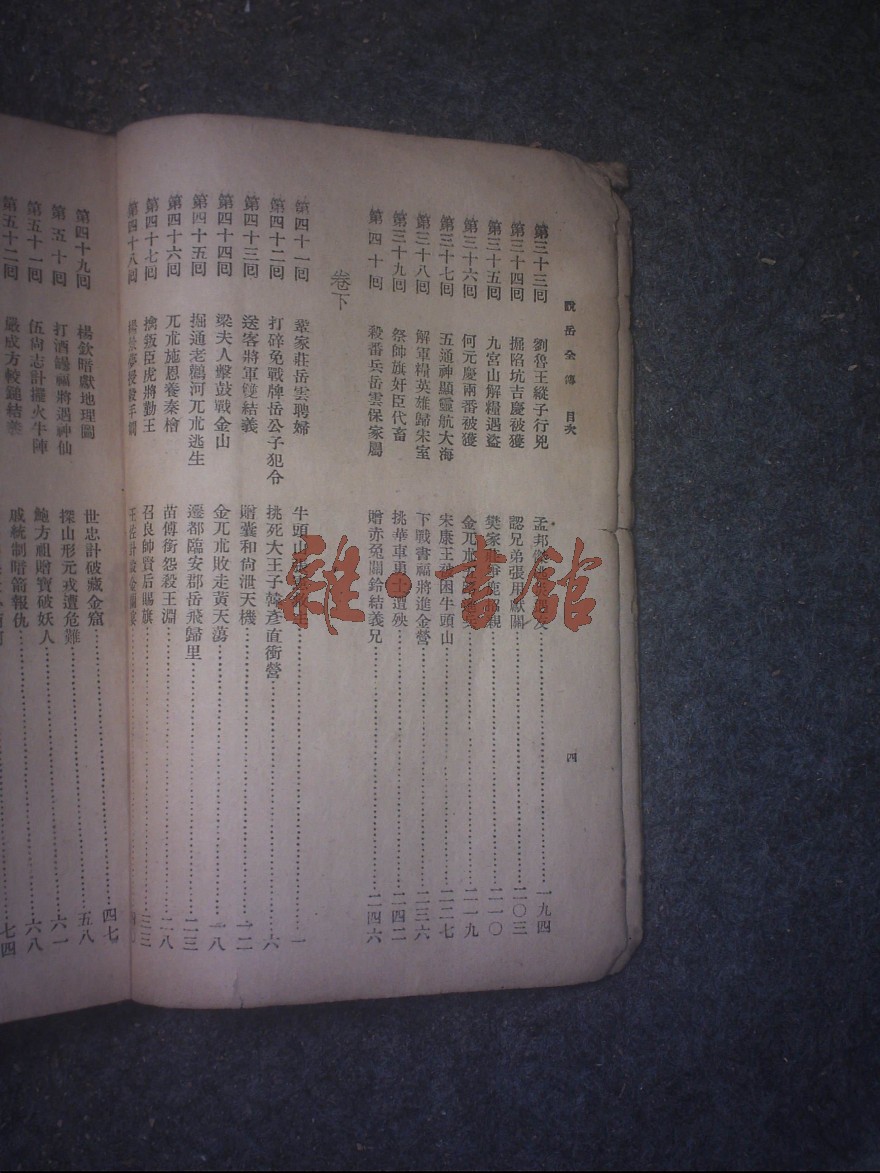 說岳全傳 目次
四
第三十三回 劉魯王縱子行兇 孟邦傑 一九四
第三十四回 掘陷坑吉慶被獲 認兄弟張用獻關 二〇三
第三十五回 九宮山解糧遇盜 樊家莊 親 二一〇
第三十六回 何元慶兩番被獲 金兀朮 二一九
第三十七回 五通神顯靈航大海 宋康王 困牛頭山 二二七
第三十八回 解軍糧英雄歸宋室 下戰書福將進金營 二三六
第三十九回 祭帥旗奸臣代畜 挑華車勇士遭殃 二四二
第四十回 殺番兵岳雲保家屬 贈赤兔關鈴結義兄 二四六
卷下
第四十一回 鞏家莊岳雲聘婦 牛頭山 一
第四十二回 打碎免戰牌岳公子犯令 挑死大王子韓彥直衝營 六
第四十三回 送客將軍雙結義 贈囊和尙泄天機 一二
第四十四回 梁夫人擊鼓戰金山 金兀朮敗走黃天蕩 一八
第四十五回 掘通老鸛河兀朮逃生 遷都臨安郡岳飛歸里 二三
第四十六回 兀朮施恩養秦檜 苗傅銜怨殺王淵 二八
第四十七回 擒叛臣虎將勤王 召良帥賢后賜旗 三三
第四十八回 楊景夢授殺手鐧
第四十九回 楊欽暗獻地理圖 世忠計破藏金窟 四七 五八
第五十回 打酒罎福將遇神仙 探山形元戎遭危難 六一
第五十一回 伍尙志計擺火牛陣 鮑方祖贈寶破妖人 六八
第五十二回 嚴成方較鎚結義 戚統制暗箭報仇 七四
雜·書館